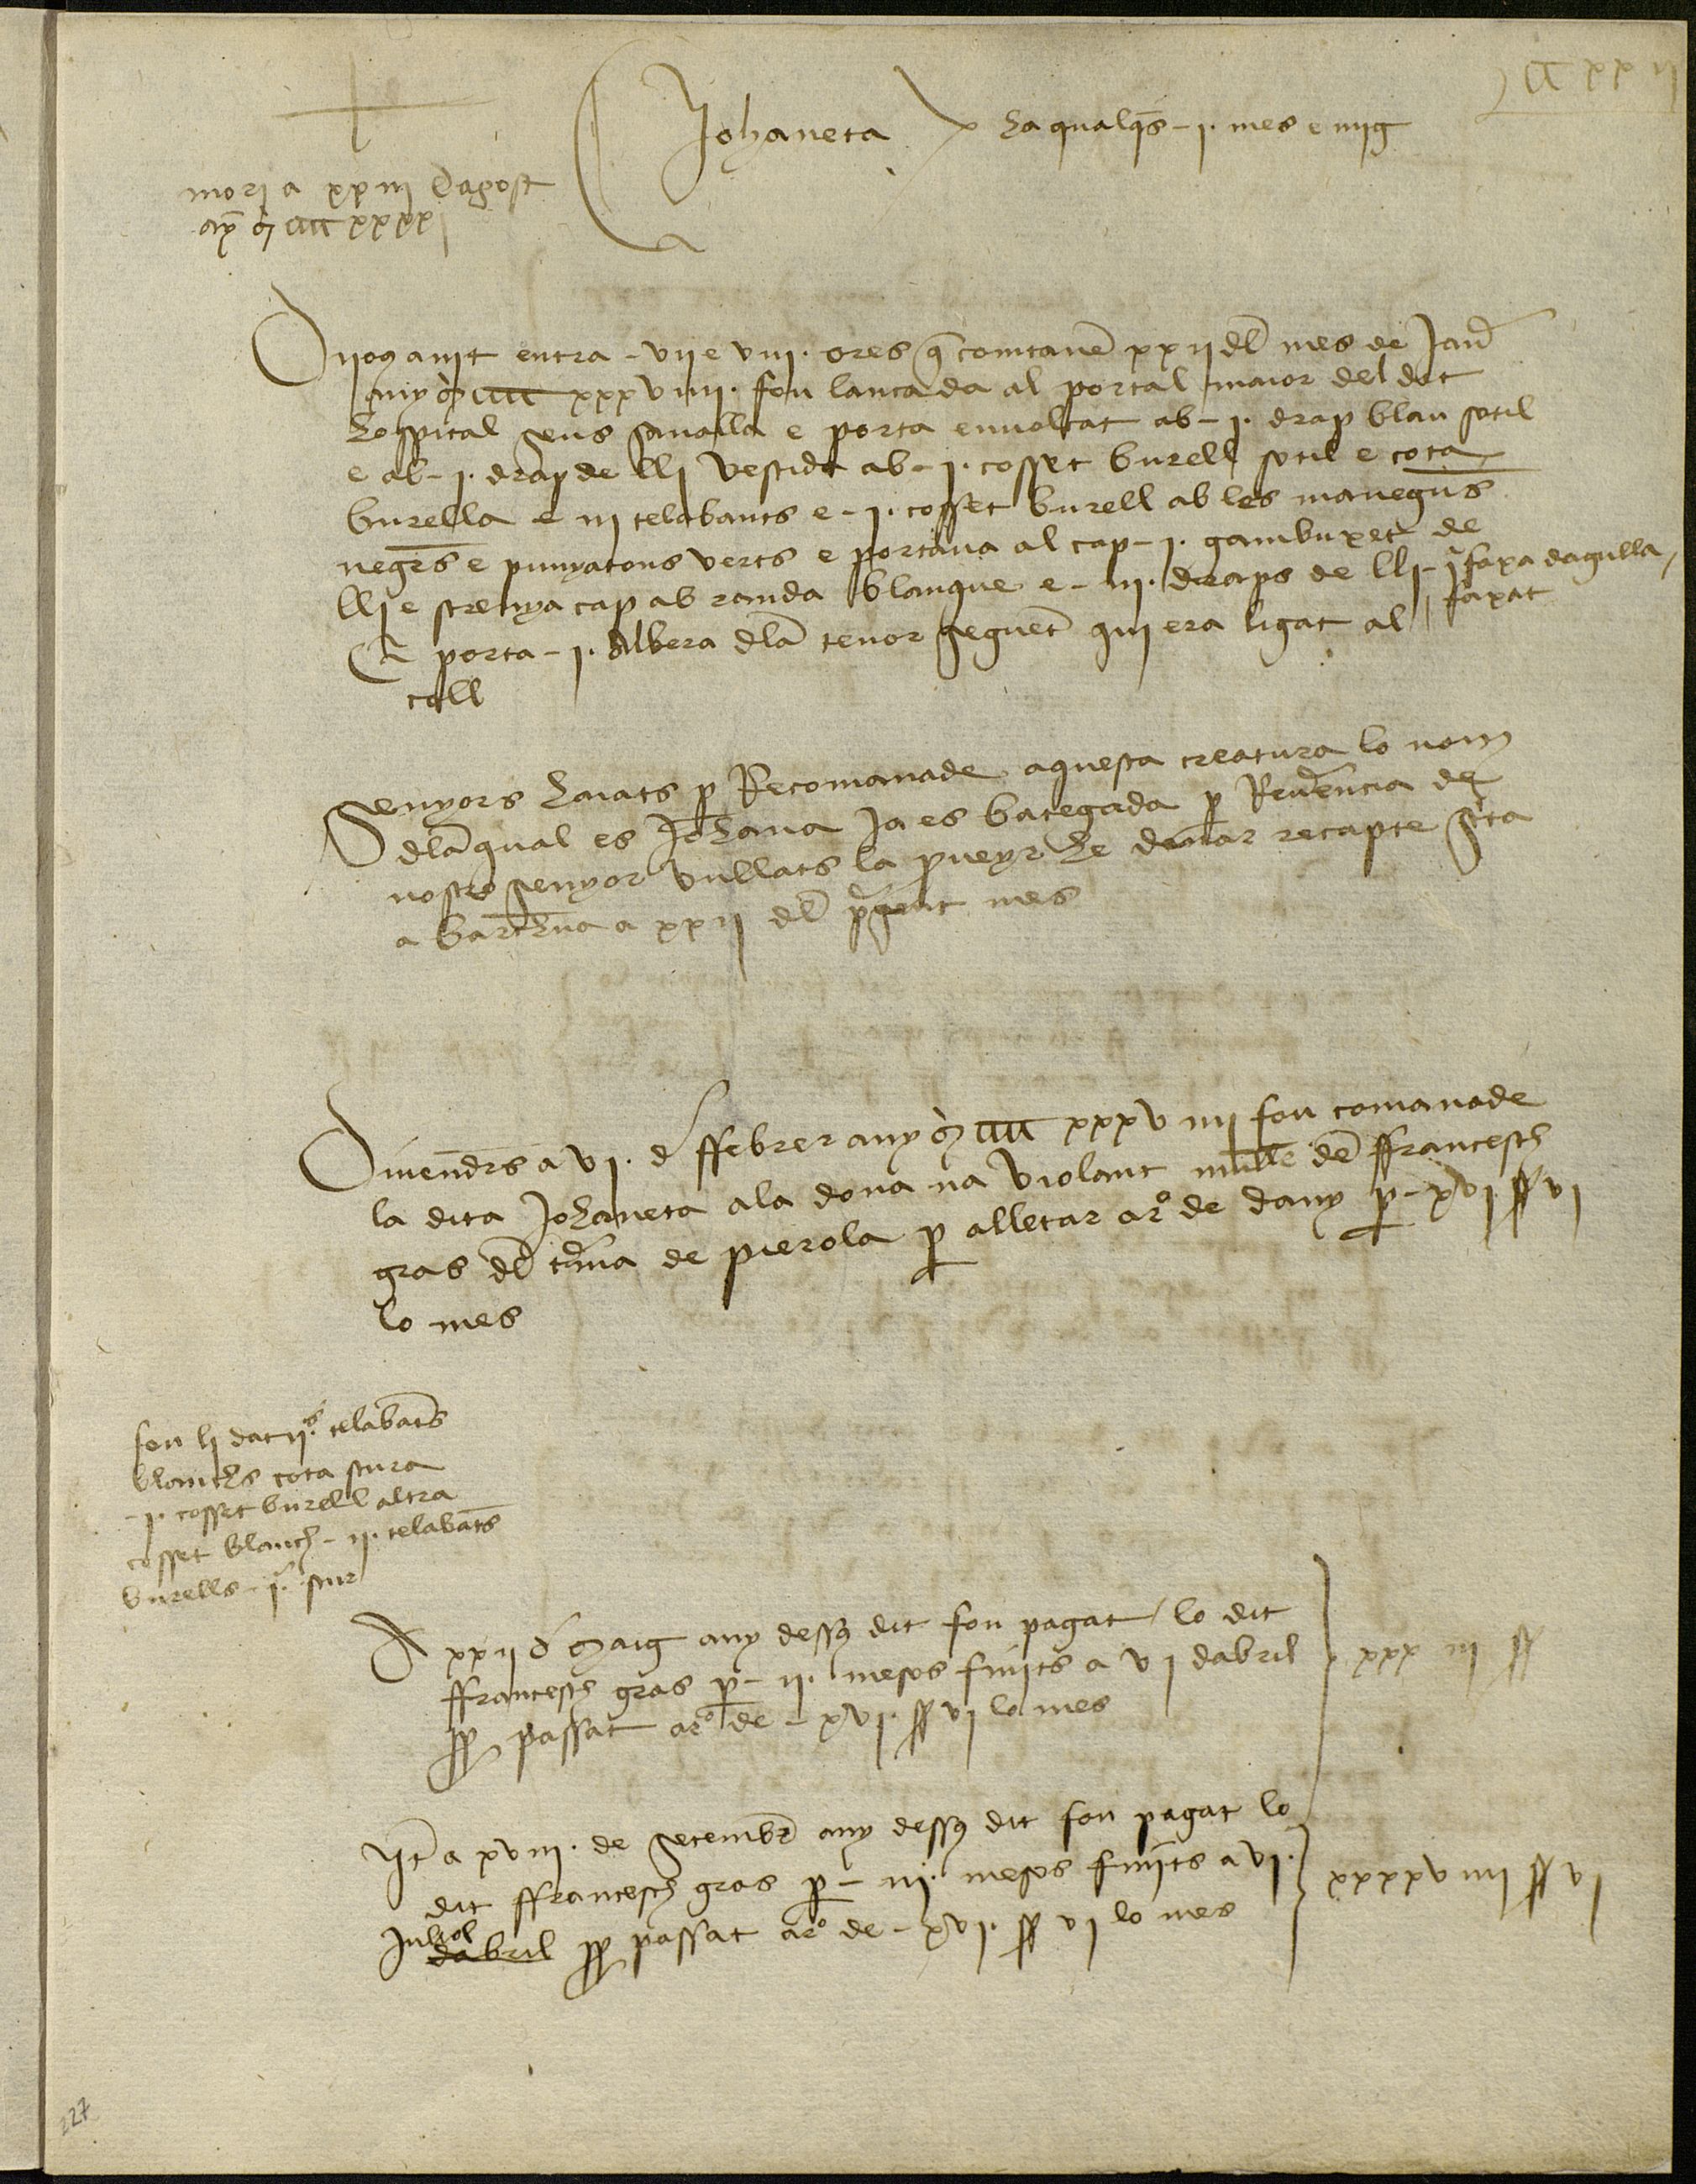 Johaneta ha qualqs - j. mes e mig
mori a xxiiij dagost
any M CCCC xxxxj
Dijous a nit entra - vij e viij. ores q comtavem xxij dl mes de Janer
any M CCCC xxxviiij. fou lançada al portal maior del dit
hospital sens senalla e porta envoltat ab - j. drap blau sotil
e ab - j. drap de lli vestida ab - j. cosset burell sotil e cota
burella e iij telabants e - j. cosset burell ab les manegus
negrs e punyatons verts e portava al cap - j. gambuxet de
lli e strenya cap ab randa blanque e - iij. draps de lli - ja faxa dagulla
E porta - j. Albera dla tenor seguent qui era ligat al faxat
coll
Senyors haiats p Recomanade aquesta creatura lo nom
dla qual es Johana ja es bategada p Reverencia de
nostre senyor vullats la proveyr he donar recapte sita
a barchna a xxij dl present mes
Divendrs a vj. de ffebrer any M CCCC xxxviiij fou comanade
la dita Johaneta ala dona na violant muller den ffrancesch
gras dl terma de pierola p alletar a ro de dany p - xvj. ss vj
lo mes
fou li dat ij.s telabats
blanchs cota scura
- j. cosset burell altra
cosset blanch - ij. telabats
burells - ja. scur
A xxij de Maig any dessus dit fou pagat lo dit
ffrancesch gras p - ij. mesos finits a vj dabril
pp passat a ro de - xvj. ss vj lo mes
xxxiij ss
Itm a xviij. de setembre any dessus dit fou pagat lo
dit ffrancesch gras p - iij. mesos finits a vj.
Juliol dabril pp passat a ro de - xvj. ss vj lo mes
xxxxviiij ss vj
227